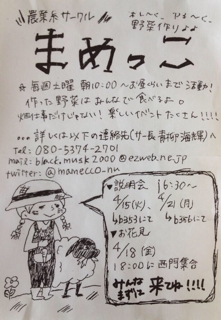 農業系サークル
よ〜く、
野菜作り♪♪
まめっこ
☆毎週土曜 朝10:00〜お昼くらいまで活動!
作った野菜はみんなで食べるよ。
畑仕事だけじゃない!楽しいイベントたくさん!!!!
...詳しくは以下の連絡先(サー長 青柳海輝)へ
Tel: 080-5374-2701
mail: black.musk2000@ezweb.ne.jp
twitter: @mamecco_nu
♥説明会 16:30〜
4/15(水) 4/21(月)
↳b353にて ↳b356にて
♥お花見
4/18(金)
18:00に西門集合
みんな
まずは来てね!!!!